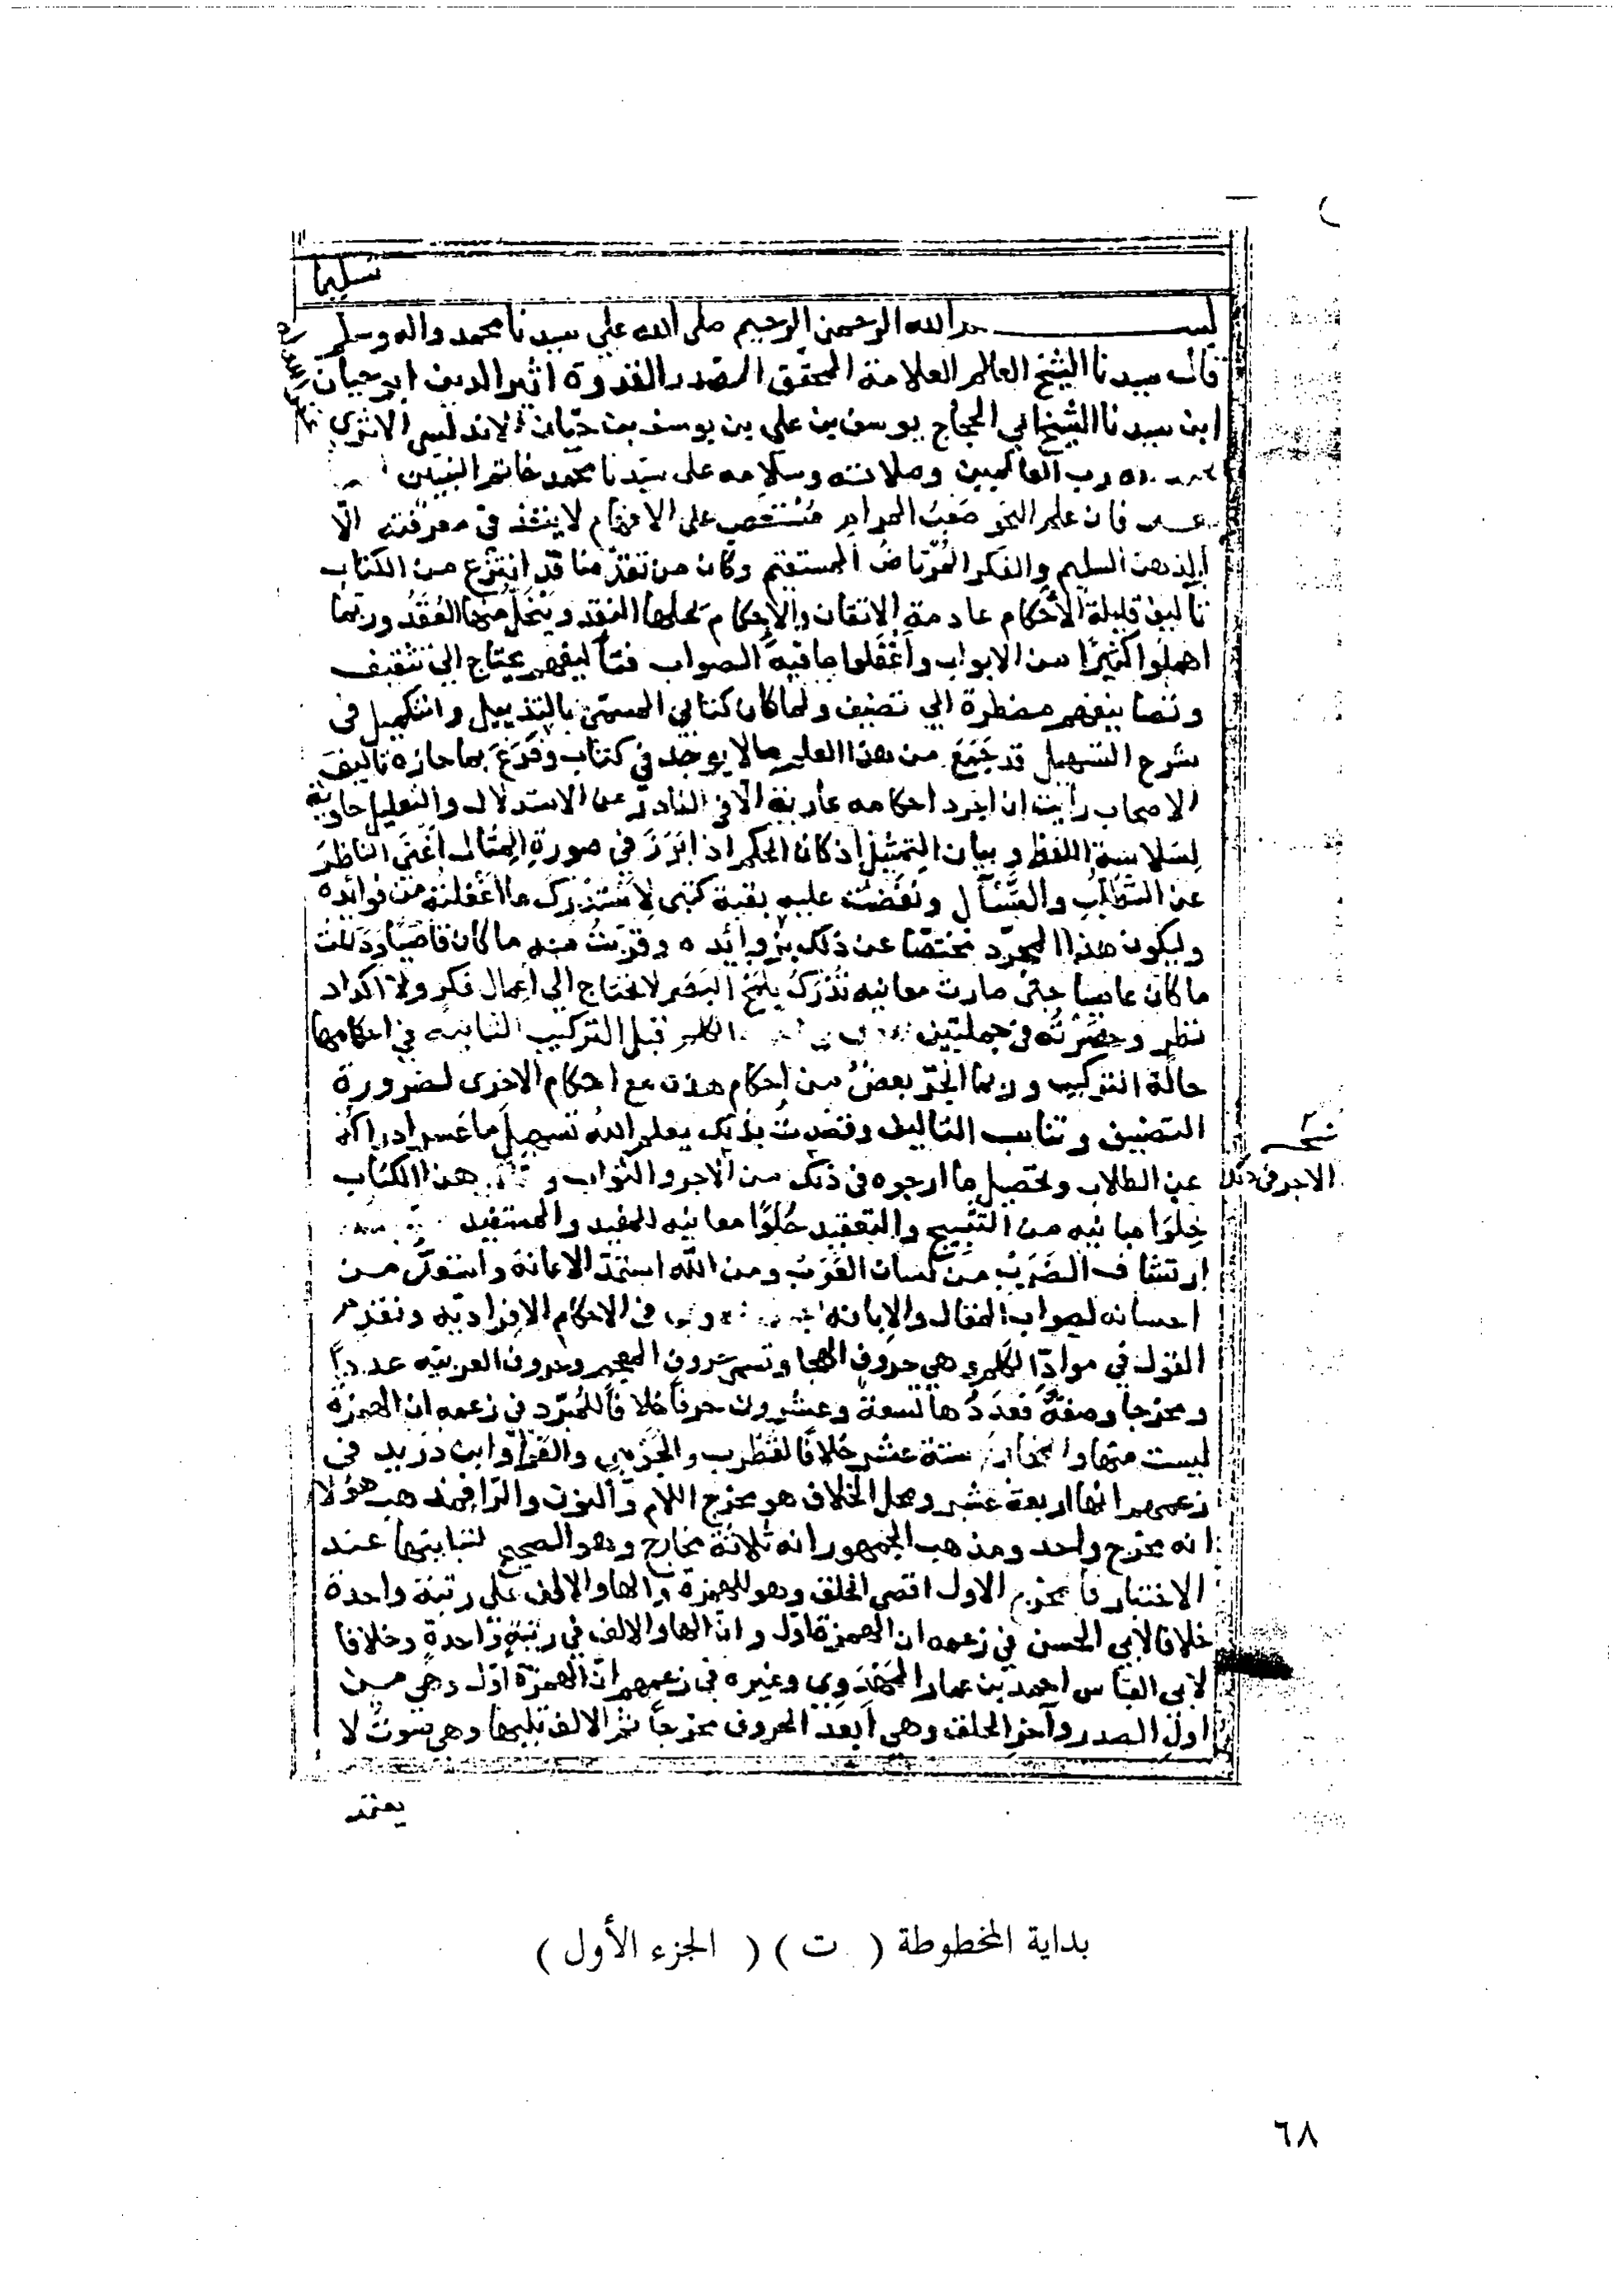 تسليما
بسم الله الرحمن الرحيم صلى الله على سيدنا محمد واله وسلم
قال سيدنا الشيخ العالم العلامة المحقق الصدر القدوة اثير الدين ابو حيان
ابن سيدنا الشيخ ابي الحجاج يوسف بن علي بن يوسف بن حيان الاندلسي الاثري
رب العالمين وصلاته وسلامه على سيدنا محمد خاتم النبيين
فان علم النحو صَعبُ المرام مُسْتَعصٍ على الافهام لا ينفذ في معرفته الّا
الذهن السليم والفكر المُرْتاضُ المستقيم وكان من تقدّمنا قد انتزع من الكتاب
تآليف قليلة الأحكام عادمة الاتقان والإحكام يحلها النقد وينحلّ منها العُقَد وربّما
اهملوا كثيرًا من الابواب واَغْفَلوا ما فيه الصواب فتآليفهم يحتاج الى تثقيف
وتصانيفهم مضطرة الي تصنيف ولما كان كتابي المسمّى بالتذييل والتكميل في
شرح التسهيل قد جَمَعَ من هذا العلم ما لا يوجد في كتاب وفَرَعَ بما حازه تآليفَ
الاصحاب رأيت ان اجرد احكامه عارية الّا في النادر عن الاستدلال والتعليل حاوية
لِسَلاسة اللفظ وبيان التمثيل اذ كان الحكم اذا بَرَزَ في صورةِ المثال اَغْنَى الناظرَ
عن التطلّبِ والتَّسْآل ونَفَضْتُ عليه بقية كتبى لِاَسْتَدْرِكَ ما اَغْفلتُه من فوائده
وليكون هذا المجرّد مختصّا عن ذلك بزوائده وقرّبْتُ منه ما كان قاصيًا وذَلّلتُ
ما كان عاصيا حتّى صارت معانيه تُدْرَكُ بِلَمْحِ البَصَر لا تحتاج الي اِعمال فكرٍ ولا اكداد
نظرٍ وحَصَرْتُه في جملتين الكلم قبل التركيب الثانية في احكامها
حالة التركيب وربما انجرّ بعضٌ من احكام هذه مع احكام الاخرى لضرورة
التصنيف وتناسب التاليف وقصدتُ بذلك يعلم اللهُ تسهيلَ ما عَسر ادراكه
عن الطلاب وتحصيل ما ارجوه في ذلك من الاجر والثواب و هذا الكتاب
نسخـ
الاجر فى ذلك
خِلْوًا مبانيه من التثبيج والتعقيد حُلْوًا معانيه للمفيد والمستفيد
ارتشاف الضَرَبْ من لسان العَرَبْ ومن اللّه استمدّ الاعانة واستوكف من
احسانه لصواب المقال والابانه في الاحكام الافراديّه ونقدّم
القول في موادّ الكلم وهي حروف الهجا وتسمى حروف المعجم وحروف العربيّه عددًا
ومخرجًا وصفةً فعَدَدُها تسعة وعشرون حرفًا خلافًا للمُبَرّد في زعمه ان الهمزة
ليست منها والمخارج ستة عشر خلافًا لقُطْرب والجَرْمِي والفَرّا وابن دُرَيد في
زعمهم انها اربعة عشر ومحل الخلاف هو مخرج اللام والنون والرّا فمذهب هؤلا
انه مخرج واحد ومذهب الجمهور انه ثلاثة مخارج وهو الصحيح لتباينها عند
الاختبار فالمخرج الاول اقصى الحلق وهو للهمزة والها والالف على رتبة واحدة
خلافا لابي الحسن في زعمه ان الهمزة اوّل وانّ الها والالف في رتبةٍ واحدةٍ وخلافا
لابي العبّاس احمد بن عمار المهْدَوِي وغيره في زعمهم انّ الهمزة اوّل وهي من
اول الصدر وآخر الحلق وهي اَبعَدُ الحروف مخرجًا ثم الالف تليها وهي صوتٌ لا
يعتمد
بداية المخطوطة ( ت ) ( الجزء الأول )
٦٨